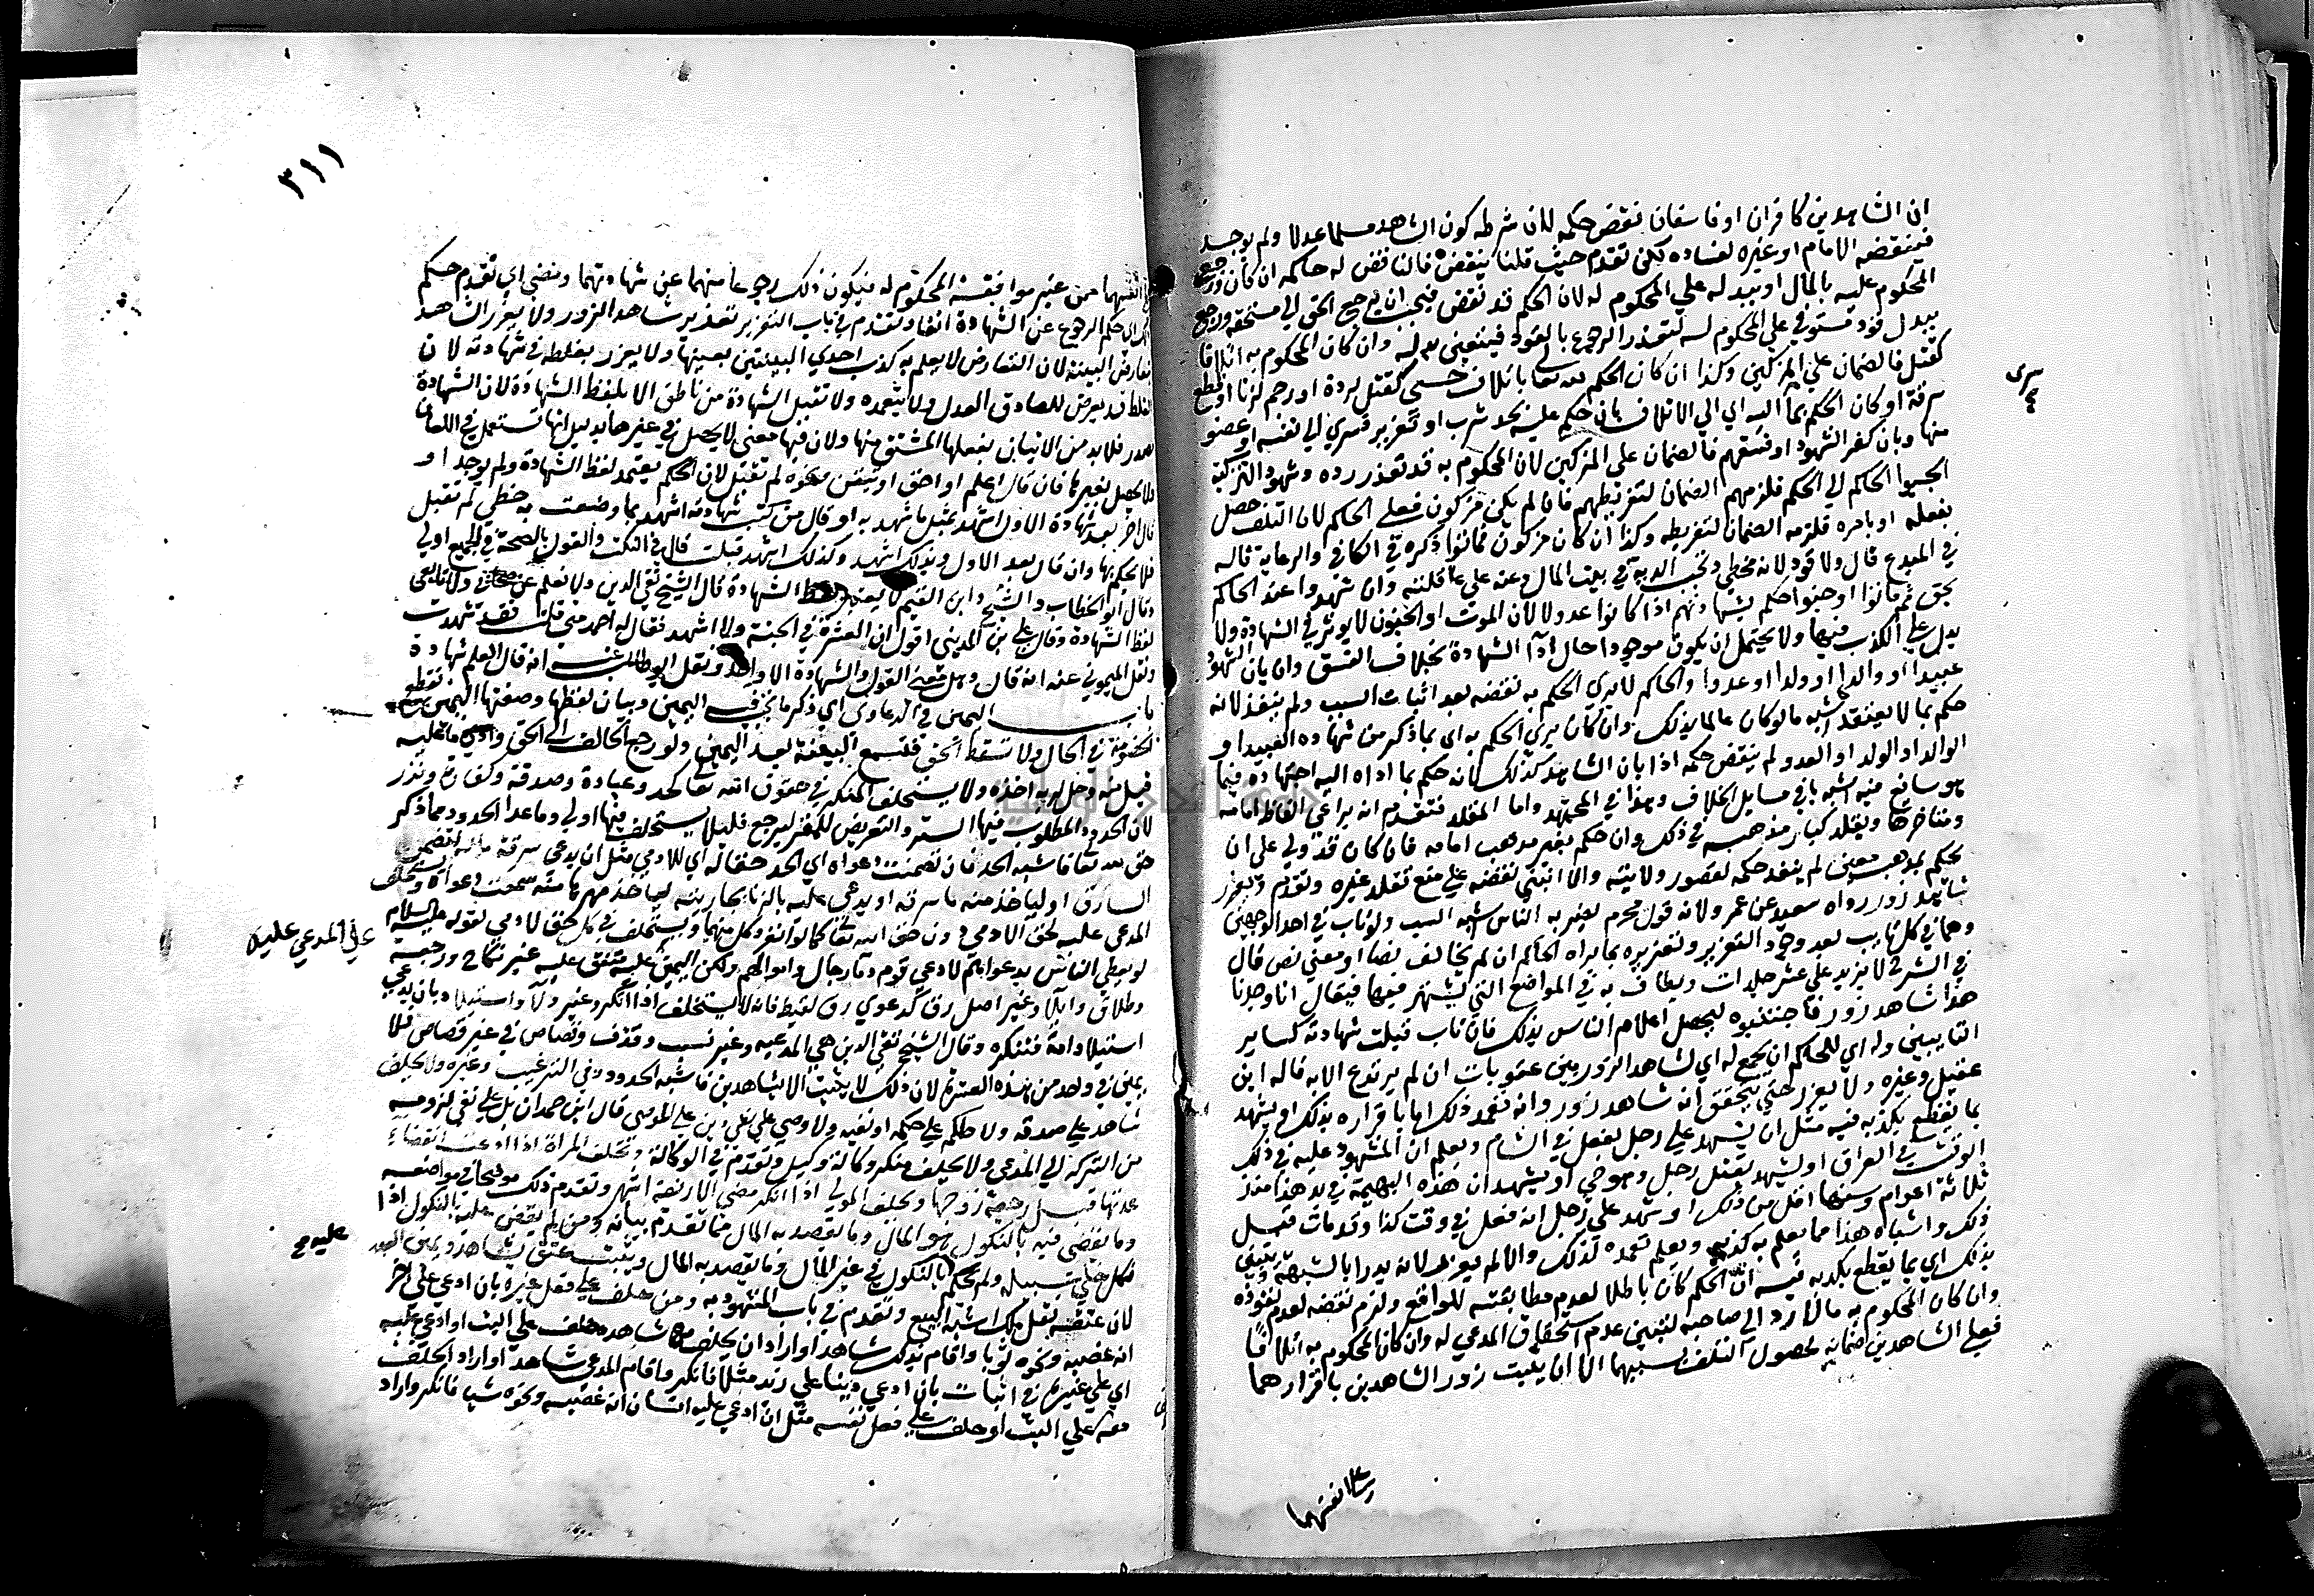 ان الشاهدين كافران او فاسقان نقض حكمه لان شرطه كون الشاهد مسلما عدلا ولم يوجد
فينقضه الامام او غيره لفساده لكن تقدم حيث قلنا ينقض فالناقض له حاكمه ان كان ورجع
المحكوم عليه بالمال او ببدله علي المحكوم له لان الحكم قد نقض فيجب ان يرجع الحق الي مستحقه ورجع
ببدل قود مستوفي علي المحكوم له لتعذر الرجوع بالقود فيتعين بدله وان كان المحكوم به اتلافا
كقتل فالضمان علي المزكين وكذا ان كان الحكم لله تعالي باتلاف حسي كقتل لردة او رجم لزنا او قطع
سرقة او كان الحكم بما اليه اي الي الاتلاف بان حكم عليه بحد شرب او تعزير فسري الي نفسه او عضو
منها وبان كفر الشهود او فسقهم فالضمان علي المزكين لان المحكوم به قد تعذر رده وشهود التزكية
الجيوا الحاكم الي الحكم فلزمهم الضمان لتفريطهم فان لم يكن مزكون فعلي الحاكم لان التلف حصل
بفعله او بامره فلزمه الضمان لتفريطه وكذا ان كان مزكون فماتوا ذكره في الكافي والرعاية قاله
في المبدع قال ولا قود لانه مخطي وتجب الدية في بيت المال وعنه علي عاقلته وان شهدوا عند الحاكم
بحق ثم ماتوا او جنوا حكم بشهادتهم اذا كانوا عدولا لان الموت او الجنون لا يوثر في الشهادة ولا
يدل علي الكذب فيها ولا يحتمل ان يكون موجودا حال اداء الشهادة بخلاف الفسق وان بان الشهود
عبيدا او والدا او ولدا او عدوا والحاكم لا يري الحكم به نقضه بعد اثبات السبب ولم ينفذ لانه
حكم بما لا يعتقده اشبه ما لو كان عالما بذلك وان كان يري الحكم به اي بما ذكر من شهادة العبيد او
الوالد او الولد او العدو لم ينقض حكمه اذا بان الشاهد كذلك لانه حكم بما اداه اليه اجتهاده فيما
هو سائغ فيه اشبه باقي مسايل الخلاف وهذا في المجتهد واما المقلد فتقدم انه يراعي الفاظ امامه
ومتاخرها ويقلد كبار مذهبه في ذلك وان حكم بغير مذهب امامه فان كان قد ولي علي ان
يحكم بمذهب معين لم ينفذ حكمه لقصور ولايته والا انبني نقضه علي منع تقليد غيره وتقدم ويعزر
شاهد زور رواه سعيد عن عمر ولانه قول محرم يضر به الناس اشبه السب ولو تاب في احد الوجهين
وهما في كل تايب بعد وجود التعزير وتعزيره بما يراه الحاكم ان لم يخالف نصا او معني نص قال
في الشرح لا يزيد علي عشر جلدات ويطاف به في المواضع التي يشتهر فيها فيقال انا وجدنا
هذا شاهد زور فاجتنبوه ليحصل اعلام الناس بذلك فان تاب قبلت شهادته كساير
التايبين وله اي للحاكم ان يجمع له اي لشاهد الزور بين عقوبات ان لم يرتدع الا به قاله ابن
عقيل وغيره ولا يعزر حتي يتحقق انه شاهد زور وانه تعمد ذلك اما باقراره بذلك او يشهد
بما يقطع بكذبه فيه مثل ان يشهد علي رجل بفعل في الشام ويعلم ان المشهود عليه في ذلك
الوقت في العراق او يشهد بقتل رجل وهو حي او يشهد ان هذه البهيمة في يد هذا منذ
ثلاثة اعوام وسنها اقل من ذلك او شهد علي رجل انه فعل في وقت كذا وقد مات قبل
ذلك واشباه هذا مما يعلم به كذبه ويعلم تعمده لذلك والا لم يعزر لانه يدرا بالشبهة ويتبين
بذلك اي بما يقطع بكذبه فيه ان الحكم كان باطلا لعدم مطابقته للواقع ولزم نقضه لعدم نفوذه
وان كان المحكوم به مالا رد الي صاحبه لتبين عدم استحقاق المدعي له وان كان المحكوم به اتلافا
فعلي الشاهدين ضمانه لحصول التلف بسببهما الا ان يثبت زور الشاهدين باقرارهما
علي انفسهما
٣١١
علي انفسهما من غير موافقة المحكوم له فيكون ذلك رجوعا منهما عن شهادتهما ومضي اي تقدم حكم
اي حكم الرجوع عن الشهادة انفا وتقدم في باب التعزير تعزير شاهد الزور ولا يعزر الشاهد
بتعارض البينة لان التعارض لا يعلم به كذب احدي البينتين بعينها ولا يعزر بغلطه في شهادته لان
الغلط قد يعرض للصادق العدل ولا يتعمده ولا تقبل الشهادة من ناطق الا بلفظ الشهادة لان الشهادة
مصدر فلا بد من الاتيان بفعلها المشتق منها ولان فيها معني لا يحصل في غيرها بدليل انها تستعمل في اللعان
ولا يحصل بغيرها فان قال اعلم او احق او اتيقن ونحوه لم تقبل لان الحكم يعتمد لفظ الشهادة ولم يوجد او
قال اخر بعد شهادة الاول اشهد بمثل ما شهد به او قال من كتب شهادته اشهد بما وضعت به خطي لم تقبل
فلا يحكم بها وان قال بعد الاول وبذلك اشهد وكذلك اشهد قبلت قال في النكت والقول بالصحة في الجميع اولي
وقال ابو الخطاب والشيخ وابن القيم لا يعتبر لفظ الشهادة قال الشيخ تقي الدين ولا نعلم عن صحابي ولا تابعي
لفظ الشهادة وقال علي بن المديني اقول ان العشرة في الجنة ولا اشهد فقال له احمد متي قلت فقد شهدت
ونقل الميموني عنه انه قال وهل معني القول والشهادة الا واحد ونقل ابو طالب عنه انه قال العلم شهادة
باب اليمين في الدعاوي اي ذكر ما تجب فيه اليمين وبيان لفظها وصفتها اليمين تقطع
الخصومة في الحال ولا تسقط الحق فتسمع البينة بعد اليمين ولو رجع الحالف الي الحق وادي ما عليه
قبل منه وحل لربه اخذه ولا يستحلف المنكر في حقوق الله تعالي كحد وعبادة وصدقة وكفارة ونذر
لان الحدود المطلوب فيها الستر والتعريض للمقر ليرجع فلئلا يستحلف فيها اولي وما عدا الحدود مما ذكر
حق لله تعالي فاشبه الحد فان تضمنت دعواه اي الحد حقا له اي للادمي مثل ان يدعي سرقة ماله لتضمين
السارق او لياخذ منه ما سرقه او يدعي عليه بالزنا بجاريته لياخذ مهرها منه سمعت دعواه ويستحلف
المدعي عليه لحق الادمي دون حق الله تعالي كما لو انفرد كل منهما ويستحلف في كل حق لادمي لقوله عليه السلام
لو يعطي الناس بدعواهم لادعي قوم دماء رجال واموالهم ولكن اليمين علي المدعي عليه متفق عليه غير نكاح ورجعة
وطلاق وايلاء وغير اصل رق كدعوي رق لقيط فانه لا يستحلف اذا انكر وغير ولاء واستيلاد بان يدعي
استيلاد امة فتنكره وقال الشيخ تقي الدين هي المدعية وغير نسب وقذف وقصاص في غير قصاص فلا
يمين في واحد من هذه العشرة لان ذلك لا يثبت الا بشاهدين فاشبه الحدود وفي الترغيب وغيره ولا يحلف
شاهد علي صدقه ولا حاكم علي حكمه او نفيه ولا وصي علي نفي دين علي الموصي قال ابن حمدان بل علي نفي لزومه
من التركة الي المدعي ولا يحلف منكر وكالة وكيل وتقدم في الوكالة وتحلف المراة اذا ادعت انقضاء
عدتها قبل رجعة زوجها ويحلف المولي اذا انكر مضي الاربعة اشهر وتقدم ذلك موضحا في مواضعه
وما يقضي فيه بالنكول هو المال وما يقصد به المال مما تقدم بيانه ومن لم يقض عليه بالنكول اذا
نكل خلي سبيله ولم يحكم عليه بالنكول في غير المال وما يقصد به المال ويثبت عتق بشاهد ويمين العبد
لان عتقه نقل ملك اشبه البيع وتقدم في باب المشهود به ومن حلف علي فعل غيره بان ادعي علي اخر
انه غصبه ونحوه ثوبا واقام بذلك شاهدا واراد ان يحلف مع شاهده حلف علي البت او ادعي عليه
اي علي غيره في اثبات بان ادعي دينا علي زيد مثلا فانكر واقام المدعي شاهدا واراد الحلف
معه علي البت او حلف علي فعل نفسه مثل ان ادعي عليه انسان انه غصبه ونحوه شيا فانكر واراد